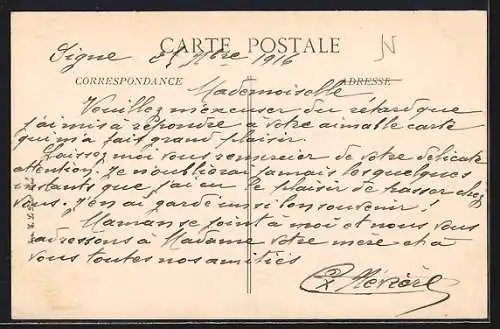 CARTE POSTALE
Signe 8bre 1916
CORRESPONDANCE ADRESSE
Mademoiselle
Veuillez m'excuser du rétard que
j'ai mis à répondre à votre aimable carte
qui m'a fais grand plaisir.
Laissez moi vous remercier de votre délicate
attention. Je n'oublierai jamais les quelques
instants que j'ai eu le plaisir de passer chez
vous. J'en ai gardé un si bon souvenir!
Maman se joint à moi et nous vous
adressons à Madame votre mère et à
vous toutes nos amitiés